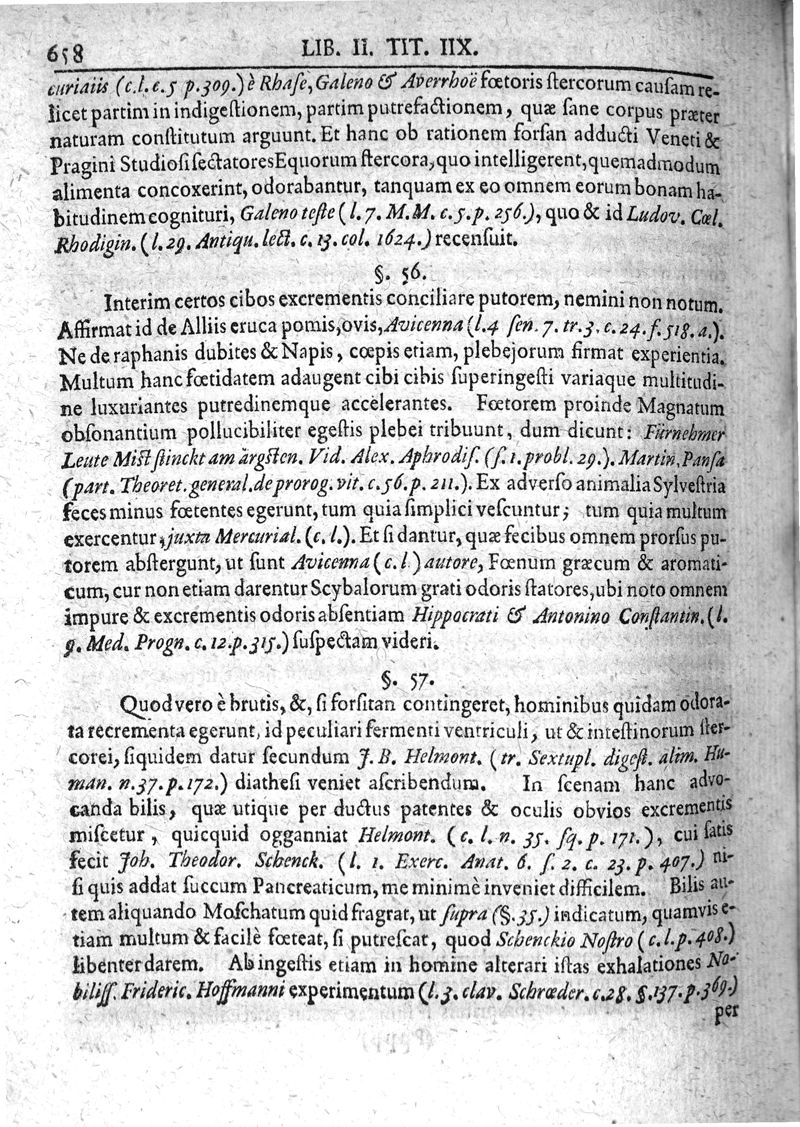 658 LIB. II. TIT. IIX.
curialiis (c.l.c.5 p.309.) è Rhase, Galeno & Averrhoë fœtoris stercorum causam re-
licet partim in indigestionem, partim putrefactionem, quæ sane corpus præter
naturam constitutum arguunt. Et hanc ob rationem forsan adducti Veneti &
Pragini Studiosi sectatores Equorum stercora, quo intelligerent, quemadmodum
alimenta concoxerint, odorabantur, tanquam ex eo omnem eorum bonam ha-
bitudinem cognituri, Galeno teste (l. 7. M.M. c.5.p. 256.), quo & id Ludov. Cœl.
Rhodigin. (l. 29. Antiqu. lect. c. 13. col. 1624.) recensuit.
§. 56.
Interim certos cibos excrementis conciliare putorem, nemini non notum.
Affirmat id de Alliis eruca pomis, ovis, Avicenna (l.4 fen. 7. tr. 3. c. 24. f. 518. a.).
Ne de raphanis dubites & Napis, cœpis etiam, plebejorum firmat experientia.
Multum hanc fœtidatem adaugent cibi cibis superingesti variaque multitudi-
ne luxuriantes putredinemque accelerantes. Fœtorem proinde Magnatum
obsonantium pollucibiliter egestis plebei tribuunt, dum dicunt: Fürnehmer
Leute Mist stinckt am ärgsten. Vid. Alex. Aphrodis. (s. 1. probl. 29.). Martin. Pansa
(part. Theoret. general. de prorog. vit. c. 56. p. 211.). Ex adverso animalia Sylvestria
feces minus fœtentes egerunt, tum quia simplici vescuntur; tum quia multum
exercentur, juxta Mercurial. (c. l.). Et si dantur, quæ fecibus omnem prorsus pu-
torem abstergunt, ut sunt Avicenna (c. l) autore, Fœnum græcum & aromati-
cum, cur non etiam darentur Scybalorum grati odoris statores, ubi noto omnem
impure & excrementis odoris absentiam Hippocrati & Antonino Constantin. (l.
9. Med. Progn. c. 12. p. 315.) suspectam videri.
§. 57.
Quod vero è brutis, &, si forsitan contingeret, hominibus quidam odora-
ta recrementa egerunt, id peculiari fermenti ventriculi, ut & intestinorum ster-
corei, siquidem datur secundum J. B. Helmont. (tr. Sextupl. digest. alim. Hu-
man. n. 37. p. 172.) diathesi veniet ascribendum. In scenam hanc advo-
canda bilis, quæ utique per ductus patentes & oculis obvios excrementis
miscetur, quicquid ogganniat Helmont. (c. l. n. 35. sq. p. 171.), cui satis
fecit Joh. Theodor. Schenck. (l. 1. Exerc. Anat. 6. s. 2. c. 23. p. 407.) ni-
si quis addat succum Pancreaticum, me minimè inveniet difficilem. Bilis au-
tem aliquando Moschatum quid fragrat, ut supra (§. 35.) indicatum, quamvis e-
tiam multum & facilè fœteat, si putrescat, quod Schenckio Nostro (c. l. p. 408.)
libenter darem. Ab ingestis etiam in homine alterari istas exhalationes No-
biliss. Frideric. Hoffmanni experimentum (l. 3. clav. Schrœder. c. 28. §. 137. p. 369.)
per